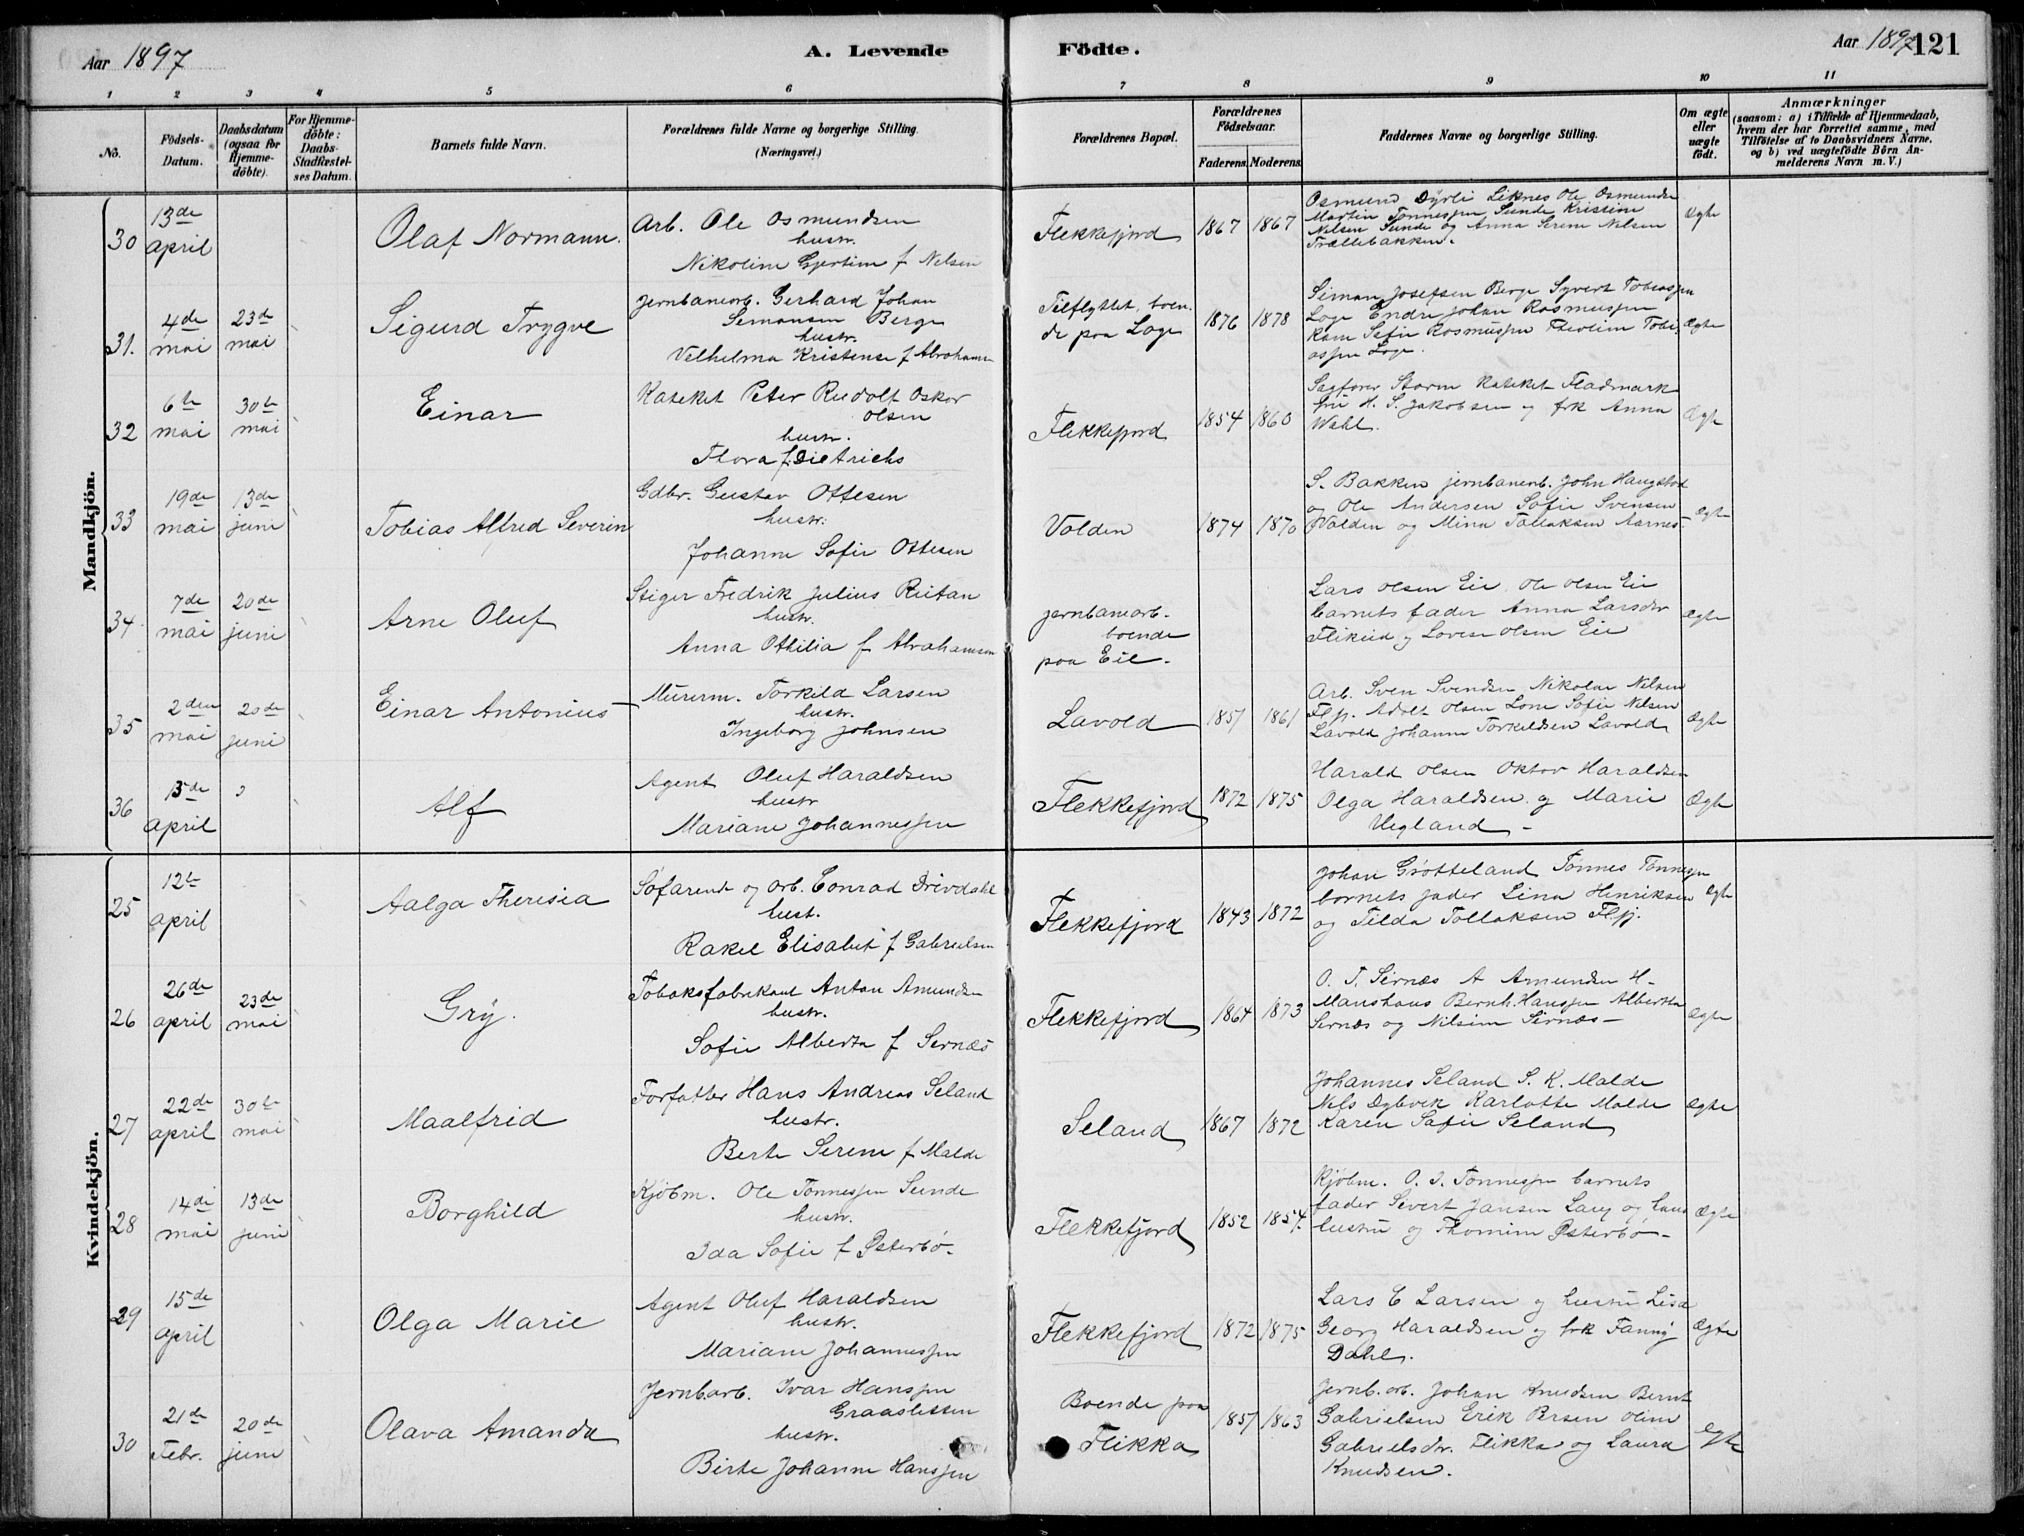 Aar 1897
A. Levende
Födte.
Aar 1897
121
1 2 3 4 5 6 7 8 9 10 11
No.
Födsels-
Datum.
Daabsdatum
(ogsaa for
Hjemme-
döbte).
For Hjemme-
döbte:
Daabs-
Stadfæstel-
ses Datum.
Barnets fulde Navn.
Forældrenes fulde Navne og borgerlige Stilling.
(Næringsvei.)
Forældrenes Bopæl.
Forældrenes
Födselsaar.
Faderens. Moderens.
Faddernes Navne og borgerlige Stilling.
Om ægte
eller
uægte
födt.
Anmærkninger
(saasom: a) i Tilfælde af Hjemmedaab,
hvem der har forrettet samme, med
Tilföielse af to Daabsvidners Navne,
og b) ved uægtefödte Börn An-
melderens Navn m. V.)
Mandkjön.
30
13de
april
Olaf Normann.
Arb. Ole Osmundsen
hustr.
Nikoline Gjertine f Nelsen
Flekkefjord
1867 1867
Osmund Dyrli Liknes Ole Osmundsen
Martin Tønnessen Sunde Kristine
Nilsen Sunde og Anna Serene Nilsen
Trællebakken.
Ægte
31.
4de
mai
23de
mai
Sigurd Trygve
Jernbanearb. Gerhard Johan
Semonsen Berge
hustr.
Velhelma Kristense f Abrahams
Tilflyttet, boen
de paa Loge
1876 1878
Siman Josefsen Berge Syvert Tobiassen
Loge Endre Johan Rasmussen
Sofie Rasmussen Theoline Tobi
assen Loge.
Ægte
32
6te
mai
30te
mai
Einar
Kateket Peter Rudolf Oskar
Olsen
hustr.
Thora f. Dietrichs
Flekkefjord
1854 1860
Sagfører Storm Kateket Fladmark
fru H. S. Jakobsen og frk Anna
Wahl.
Ægte
33
19de
mai
13de
juni
Tobias Alfred Severin
Gdbr. Gustav Ottesen
hustr.
Johanne Sofie Ottesen
Volden
1874 1870
S. Bakken jernbanearb. John Haugstad
og Ole Andersen Sofie Svensen
Volden og Mina Tollaksen Aarnes
Ægte
34
7de
mai
20de
juni
Arne Oluf
Stiger Fredrik Julius Reitan
hustr.
Anna Othilia f Abrahamsen
jernbanearb.
boende
paa Eie.
Lars Olsen Eie Ole Olsen Eie
barnets fader Anna Larsdtr
Flikeid og Lovise Olsen Eie
Ægte
35
2den
mai
20de
juni
Einar Antonius
Murerm. Torkild Larsen
hustr.
Ingeborg Johnsen
Lavold
1857 1861
Arb. Sven Svendsen Nikolai Nilsen
Flfj. Adolf Olsen Lone Sofie Nilsen
Lavold Johanne Torkildsen Lavold
Ægte
36
15de
april
Alf
Agent Oluf Haraldsen
hustr
Mariane Johannessen
Flekkefjord
1872 1875
Harald Olsen Oktav Haraldsen
Olga Haraldsen og Marie
Vegland
Ægte
Kvindekjön.
25
12te
april
Aalga Theresia
Søfarende og arb. Conrad Drivdahl
hust.
Rakel Elisabet f Gabrielsen
Flekkefjord
1843 1872
Johan Grøtteland Tønnes Tønnessen
barnets fader Lina Henriksen
og Tilda Tollaksen Flfj.
Ægte
26
26de
april
23de
mai
Gry.
Tobaksfabrikant Anton Amundsen
hustr.
Sofie Alberta f Sernæs
Flekkefjord
1864 1873
O. T. Sirnæs A Amundsen H.
Maushaus Bernh. Hanssen Alberta
Sernæs og Nilsine Sirnæs
Ægte
27
22de
april
30te
mai
Maalfrid
Forfatter Hans Andreas Seland
hustr.
Berte Serene f Malde
Seland
1867 1872
Johannes Seland S. K. Malde
Nels Dybvik Karlotte Malde
Karen Sofie Seland
Ægte
28
14de
mai
13de
juni
Borghild
Kjøbm. Ole Tønnessen Sunde
hustr.
Ida Sofie f Østerbø.
Flekkefjord
1852 1854.
Kjøbm. O. S. Tønnessen barnets
fader Severt Jansen Laug og hans
hustru og Thomine Østerbø
Ægte
29
15de
april
Olga Marie
Agent Oluf Haraldsen
hustr.
Mariane Johannessen
Flekkefjord
1872 1875
Lars C Larsen og hustru Lisa
Georg Haraldsen og frk Fanny
Dahl.
Ægte
30
21de
Febr.
20de
juni
Olava Amanda
Jernb.arb. Ivar Hanssen
Graasletten
hustr.
Birte Johanne Hanssen
Boende paa
Flikka
1857 1863
Jernb.arb. Johan Knudsen Bernt
Gabrielsen Erik Oline
Gabrielsdtr. Flikka og Laura
Knudsen.
Ægte